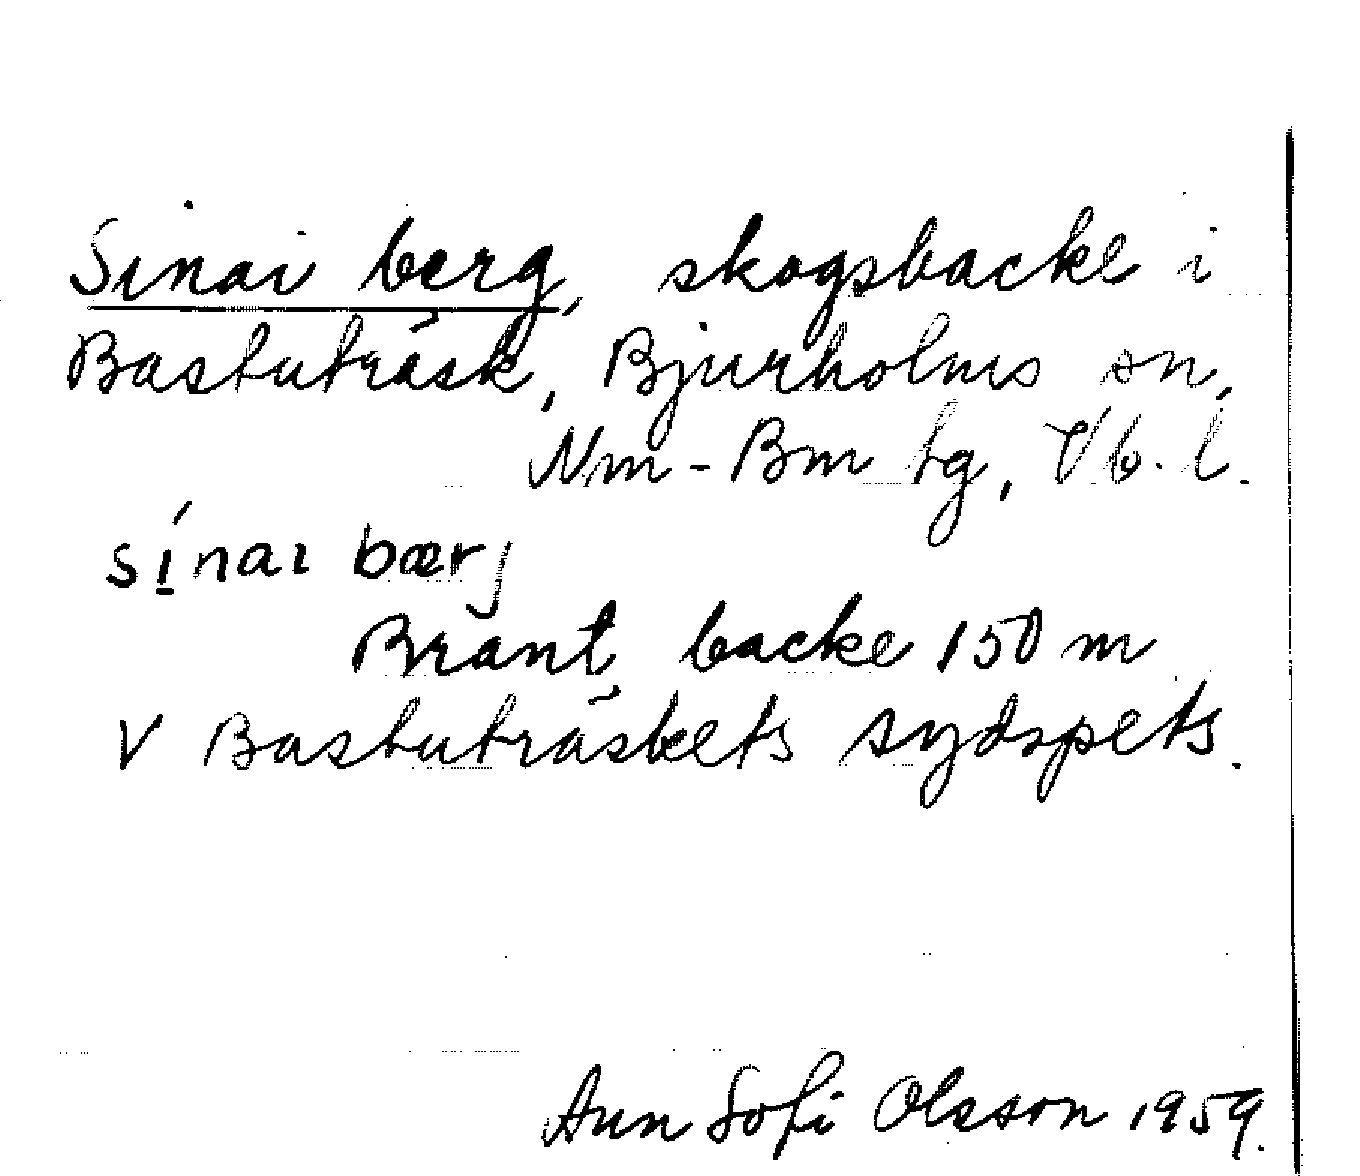 Sinai berg, skogsbacke i
Bastuträsk, Bjurholms sn,
Nm-Bm tg, Vb. l.
sínaı bærj
Brant backe 150 m
V Bastuträskets sydspets.
Ann Sofi Olsson 1959.